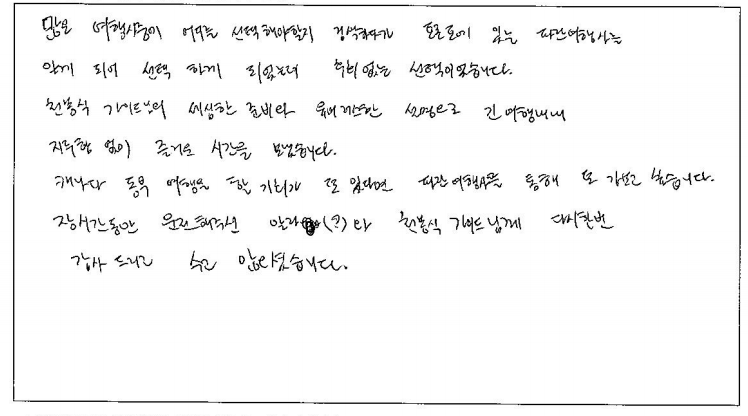 많은 여행사중에 어디를 선택해야할지 검색하다가 토론토에 있는 파란여행사를
알게 되어 선택 하게 되었는데 후회없는 선택이었습니다.
천봉식 가이드님의 세심한 준비와 유머러스한 설명으로 긴 여행내내
지루함 없이 즐거운 시간을 보냈습니다.
캐나다 동부 여행을 할 기회가 또 있다면 파란여행사를 통해 또 가보고 싶습니다.
장시간동안 운전해주신 알라 (?) 와 천봉식 가이드님께 다시한번
감사 드리고 수고 많으셨습니다.